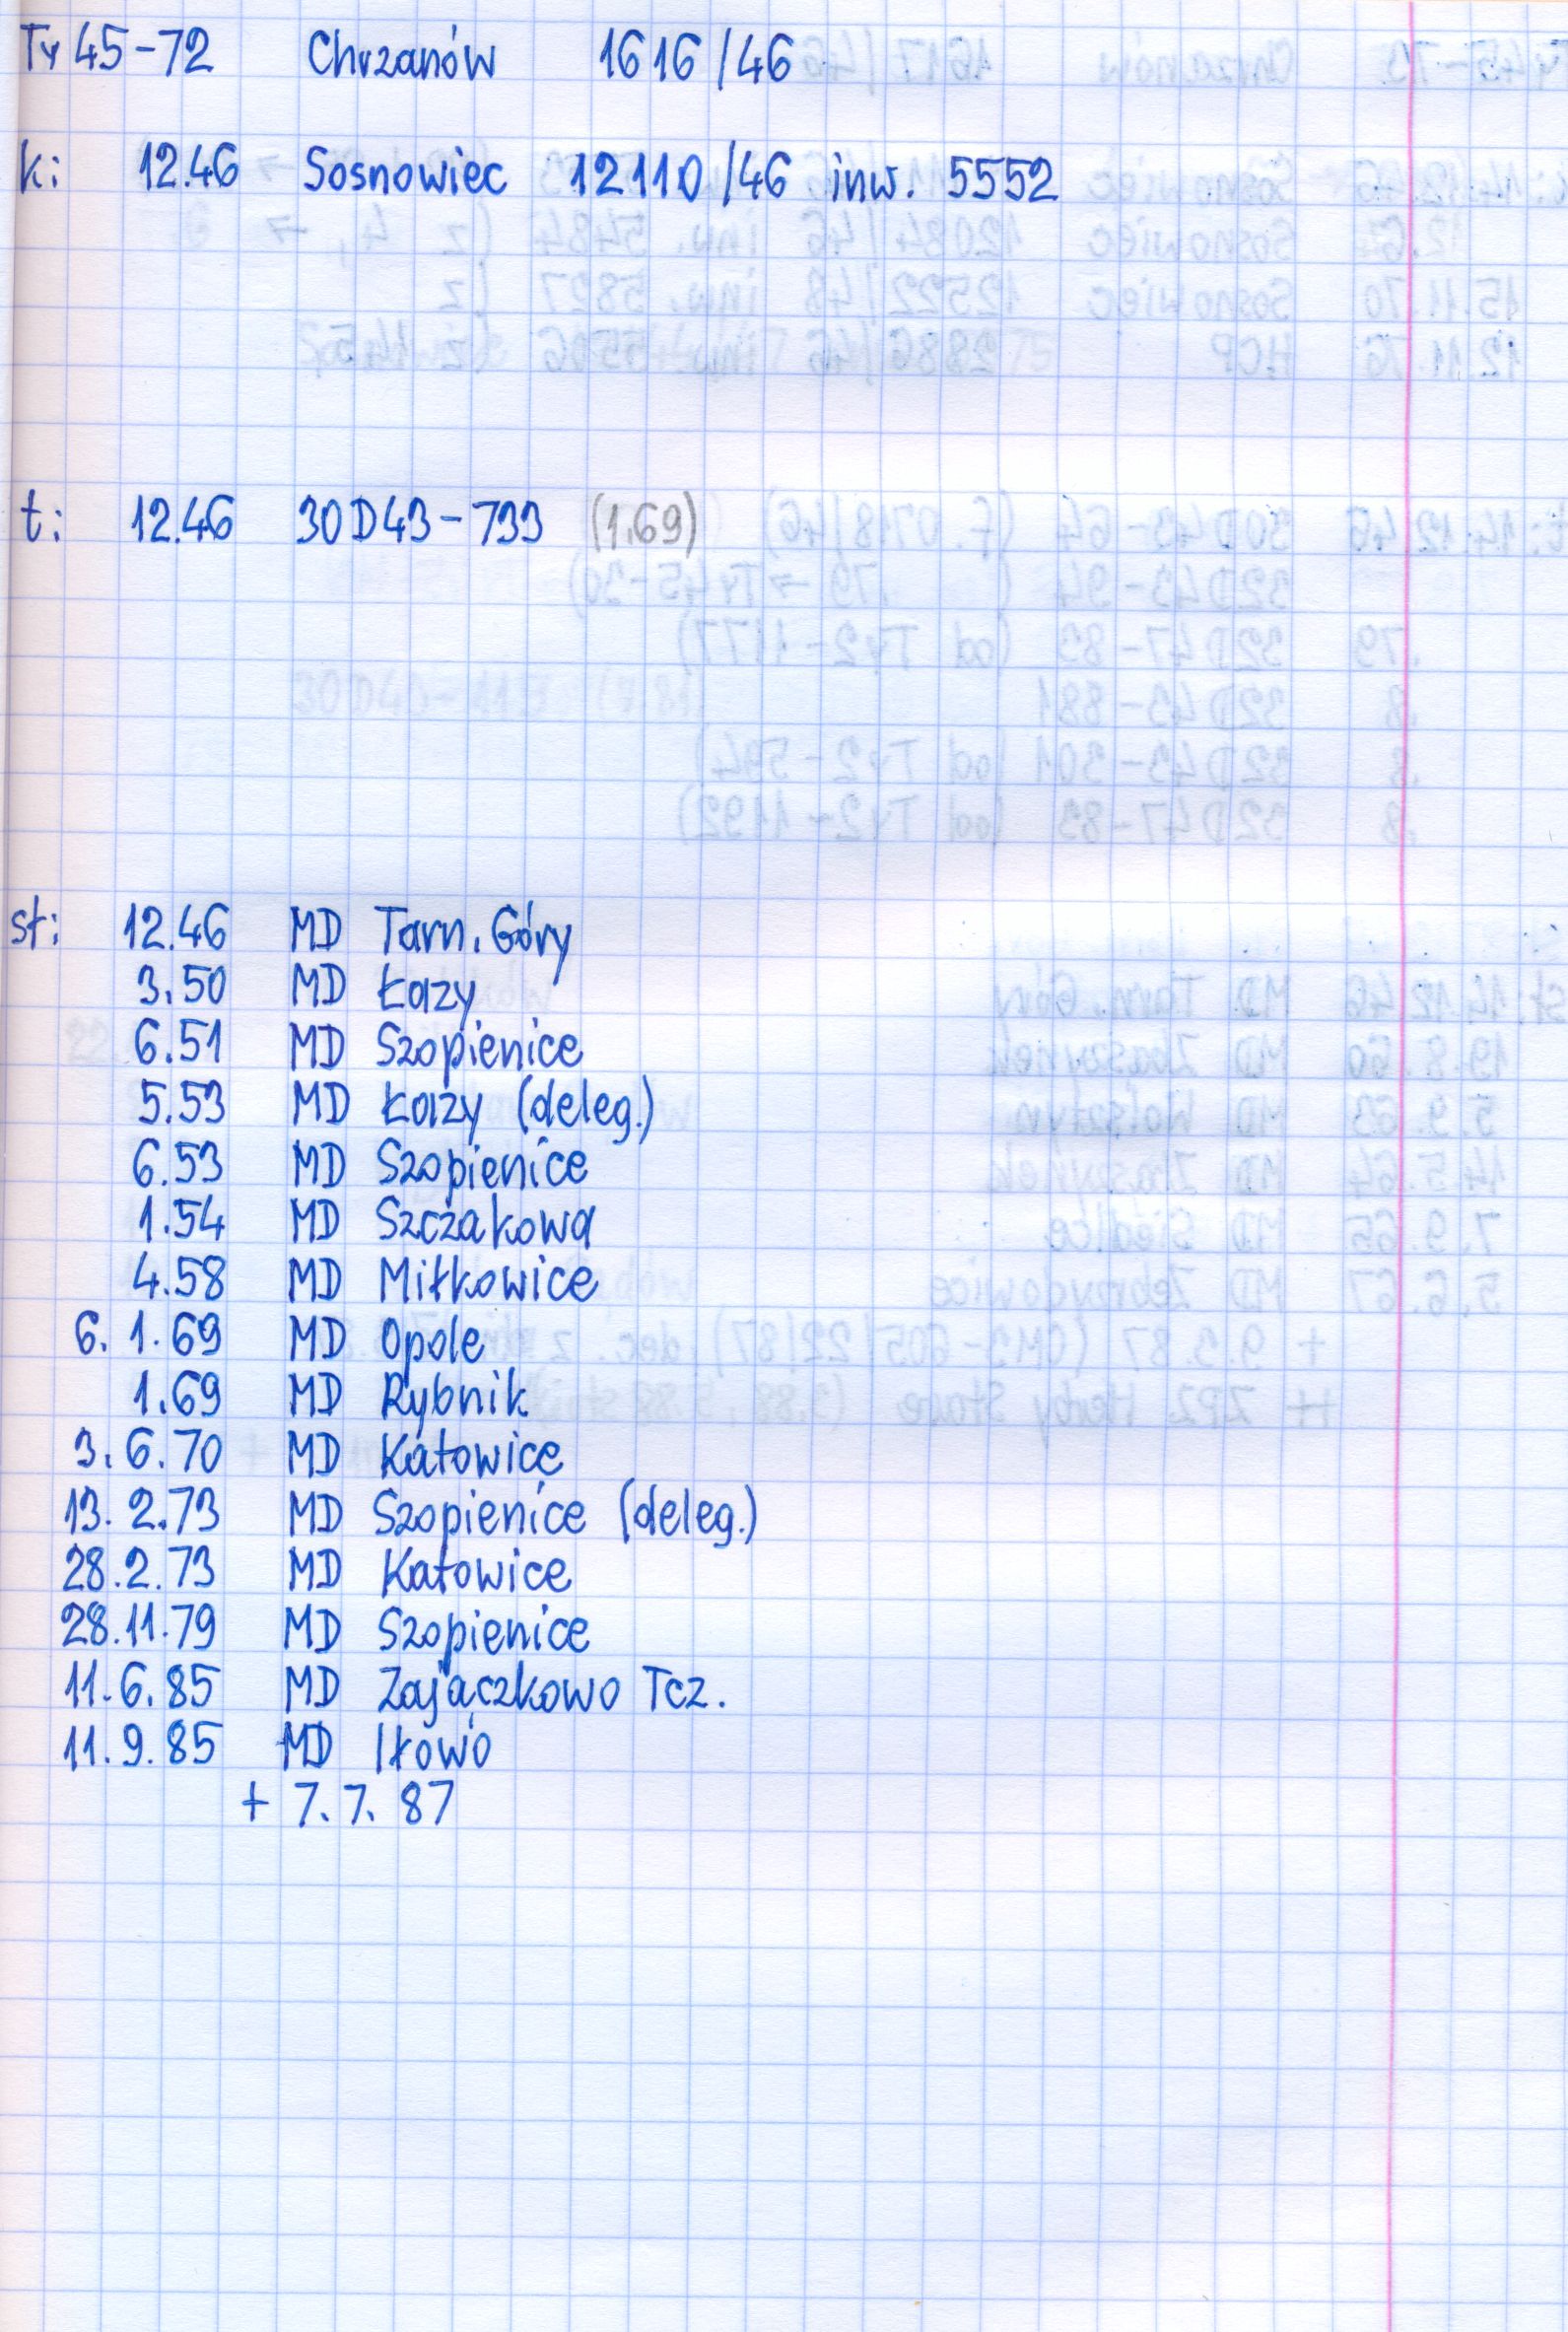 Ty45-72 Chrzanów 1616/46
k: 12.46 Sosnowiec 12110/46 inw. 5552
t: 12.46 30D43-733 (1.69)
st: 12.46 MD Tarn. Góry
3.50 MD Łazy
6.51 MD Szopienice
5.53 MD Łazy (deleg.)
6.53 MD Szopienice
1.54 MD Szczakowa
4.58 MD Miłkowice
6. 1.69 MD Opole
1.69 MD Rybnik
3.6.70 MD Katowice
13.2.73 MD Szopienice (deleg.)
28.2.73 MD Katowice
28.11.79 MD Szopienice
11.6.85 MD Zajączkowo Tcz.
11.9.85 MD Iłowo
+ 7.7.87